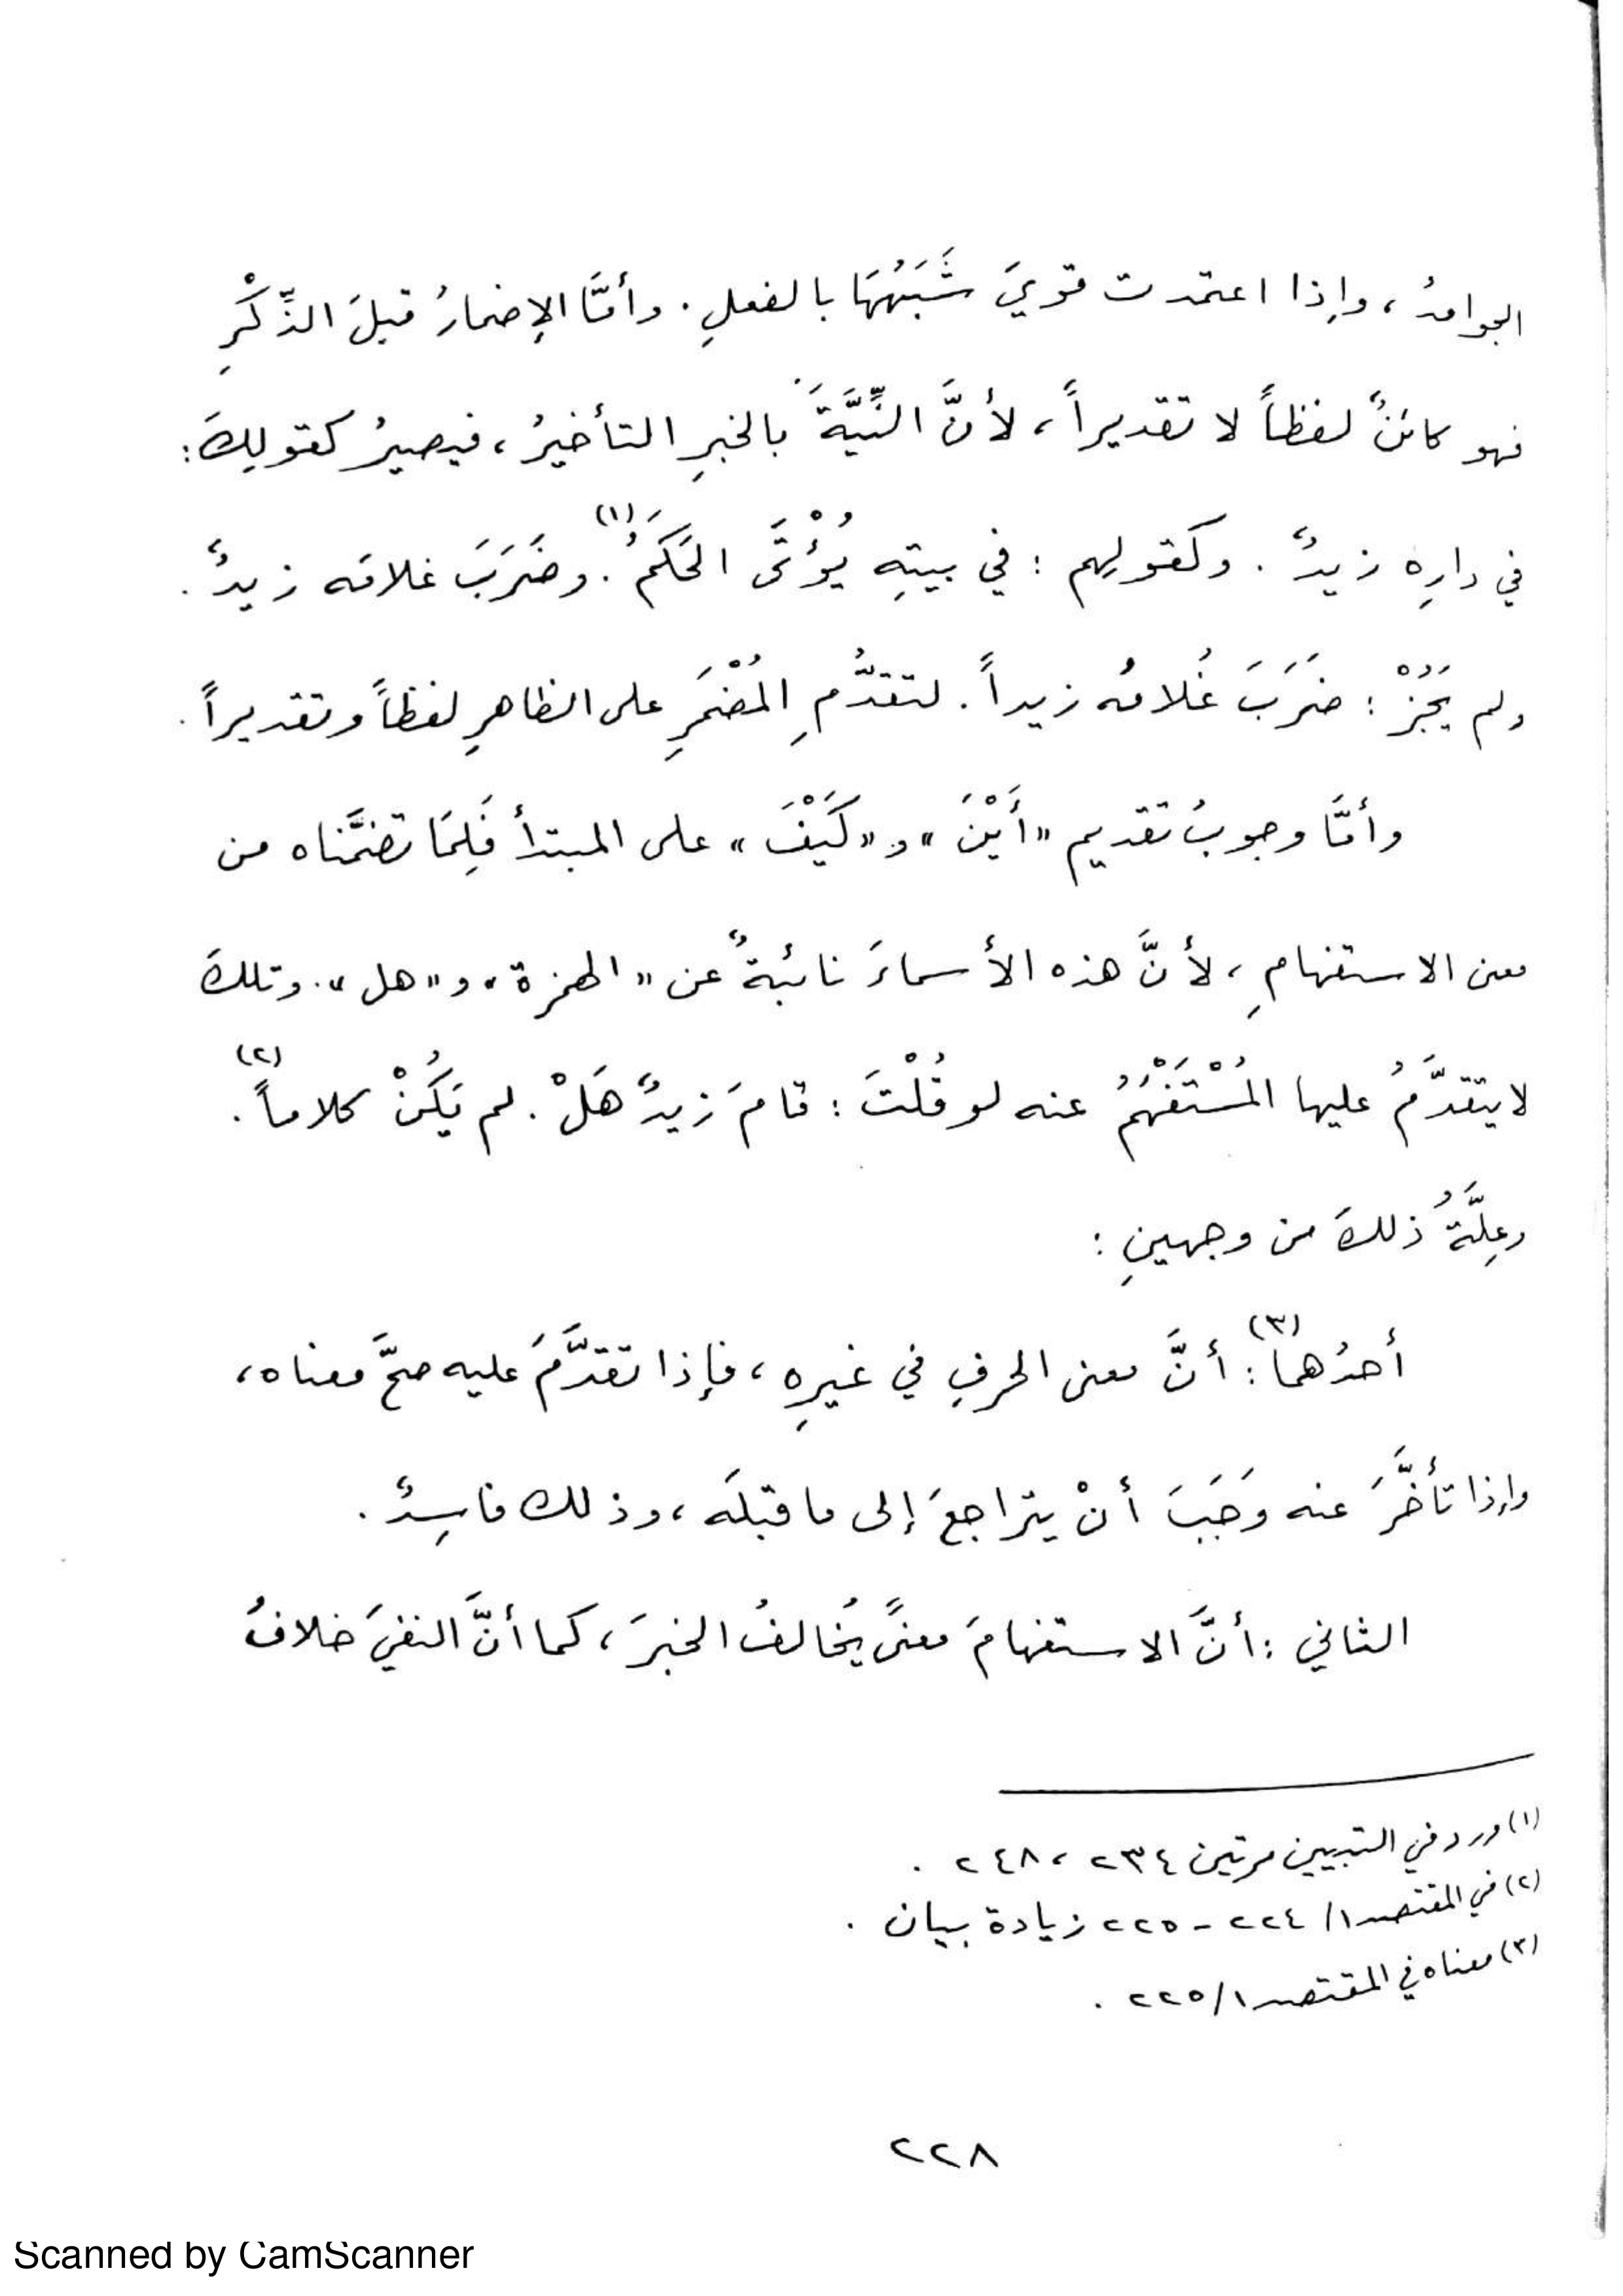 الجوامدُ ، وإِذا اعتمدت قويَ شَبَهُهَا بالفعلِ . وأمَّا الإضمارُ قبلَ الذِّكْرِ
فهو كائنٌ لفظاً لا تقديراً ، لأنَّ النِّيَّةَ بالخبرِ التأخيرُ ، فيصيرُ كقولِكَ :
في دارِه زيدٌ . وكقولِهم : في بيتِهِ يُؤْتَى الحَكَمُ (١) . وضَرَبَ غلامَه زيدٌ .
ولم يَجُزْ : ضَرَبَ غُلامُه زيداً . لتقدُّمِ المُضْمَرِ على الظاهرِ لفظاً وتقديراً .
وأمَّا وجوبُ تقديم «أَيْنَ» و«كَيْفَ» على المبتدأ فَلِمَا تضمَّناه من
معنى الاستفهامِ ، لأنَّ هذه الأسماءَ نائبةٌ عن «الهمزة» و«هل» . وتلكَ
لا يتقدَّمُ عليها المُسْتَفْهَمُ عنه لو قُلْتَ : قامَ زيدٌ هَلْ . لم يَكُنْ كلاماً (٢) .
وعِلَّةُ ذلكَ من وجهينِ :
أحدُهما (٣) : أنَّ معنى الحرفِ في غيرِهِ ، فإذا تقدَّمَ عليه صحَّ معناه ،
وإذا تأخَّرَ عنه وَجَبَ أنْ يتراجعَ إلى ما قبلَه ، وذلك فاسِدٌ .
الثاني : أنَّ الاستفهامَ معنىً يُخالفُ الخبرَ ، كما أنَّ النفيَ خلافُ
(١) ورد في التبيين مرتين ٢٣٤ ، ٢٤٨ .
(٢) في المقتصد ١/ ٢٢٤ - ٢٢٥ زيادة بيان .
(٣) معناه في المقتصد ١/ ٢٢٥ .
٢٢٨
Scanned by CamScanner